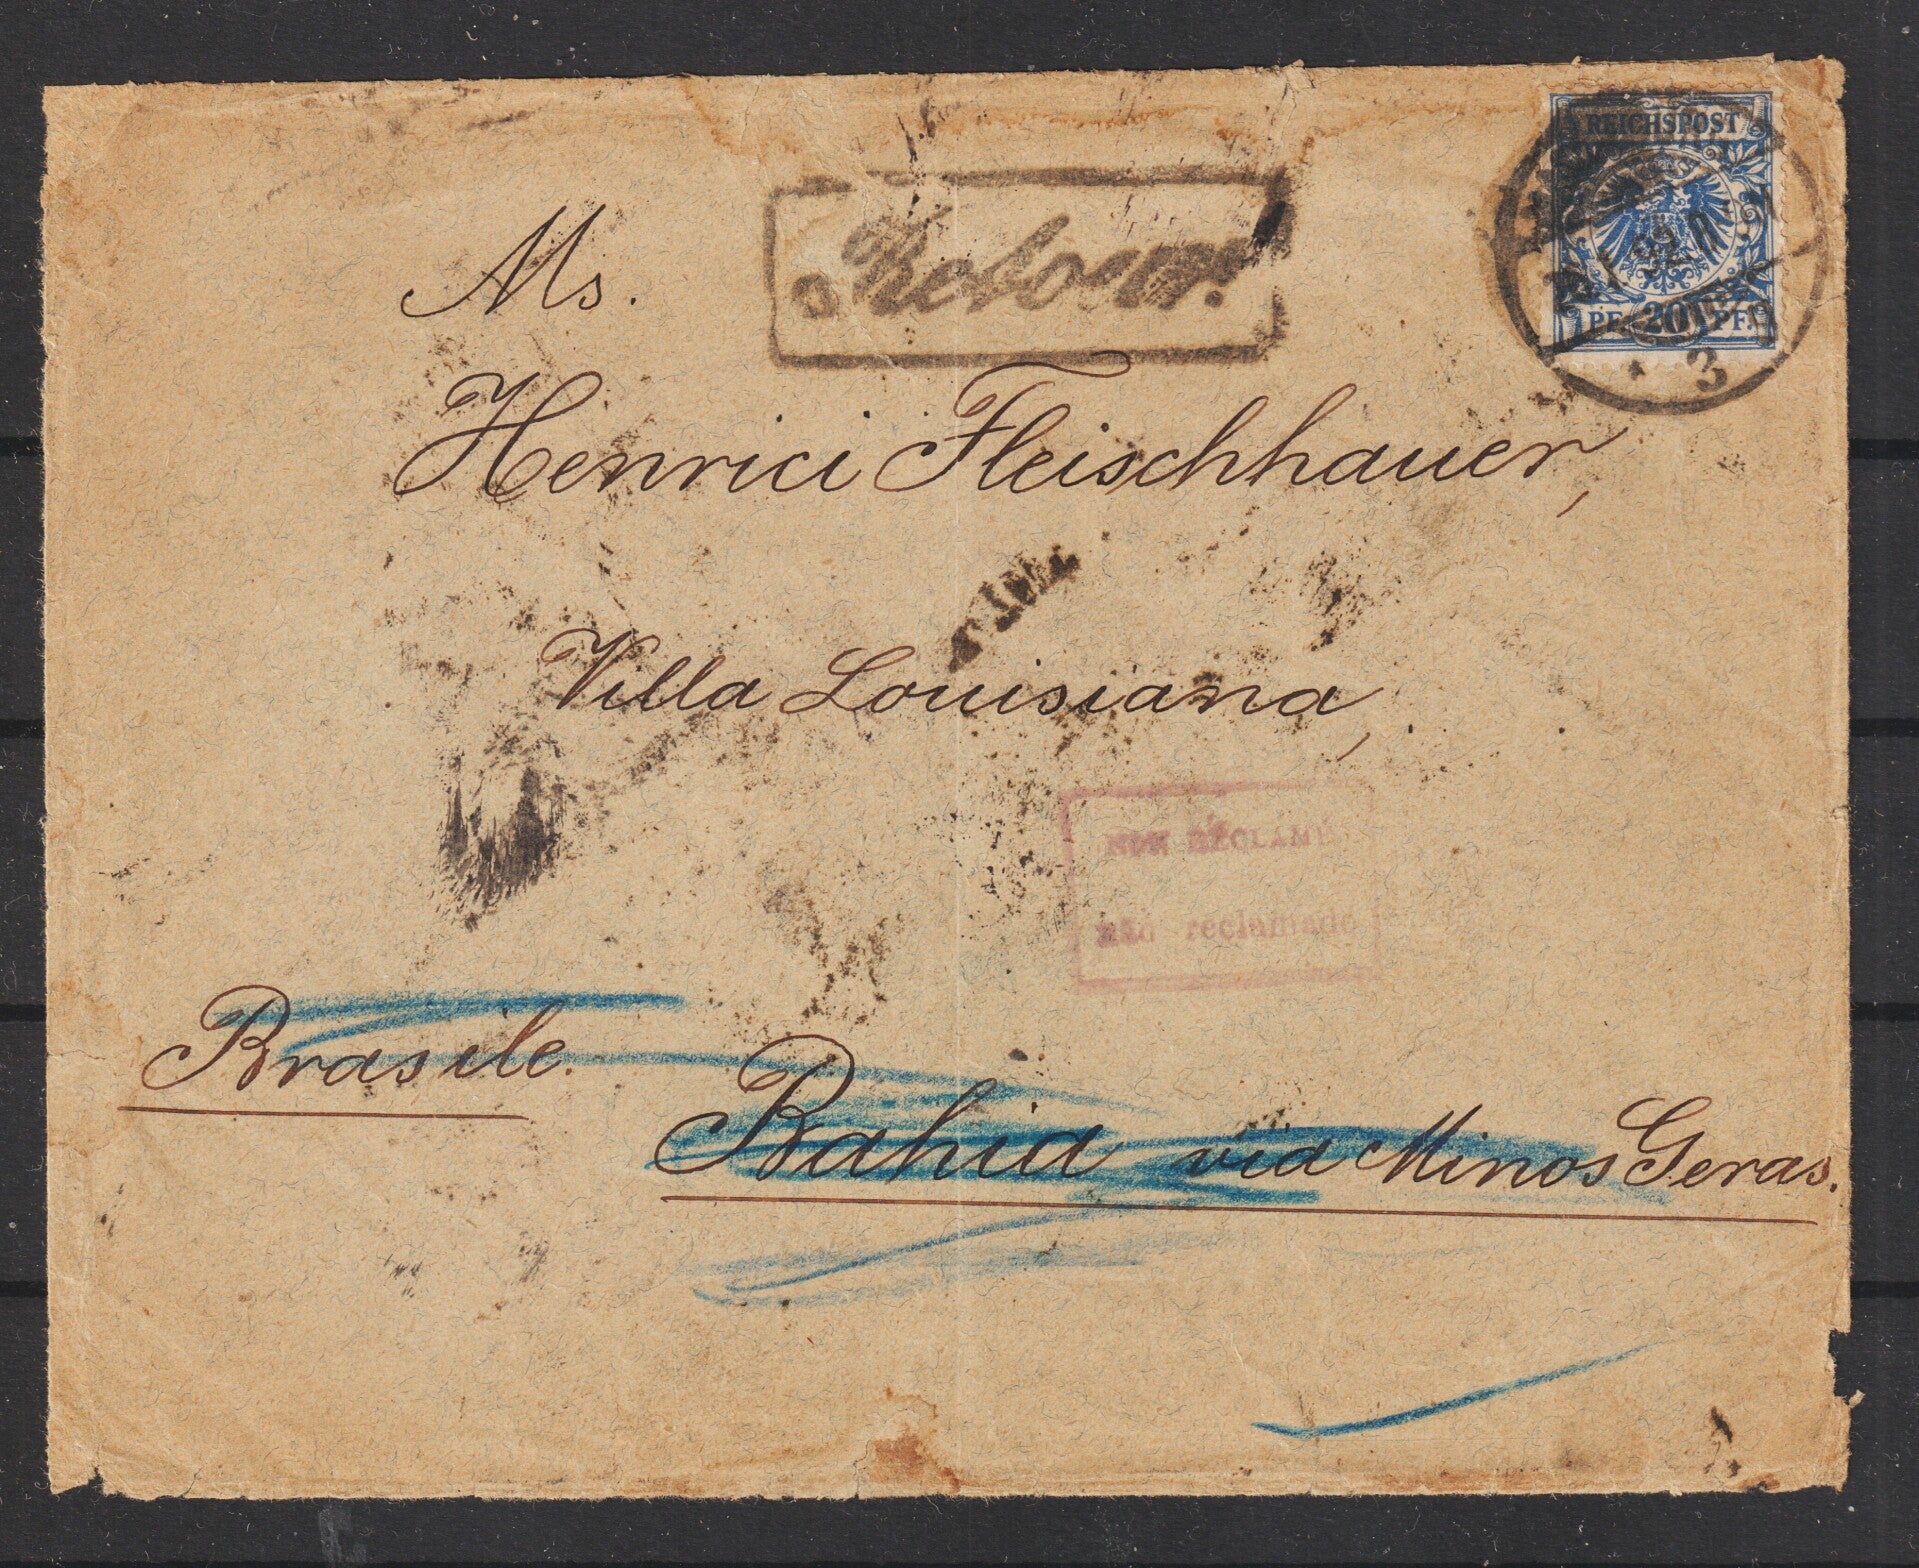 REICHSPOST
20
PF.
3
Retour.
Ms.
Henrici Fleischhauer,
Villa Louisiana,
NON RÉCLAMÉ
não reclamado
Brasile.
Bahia via Minos Geras.